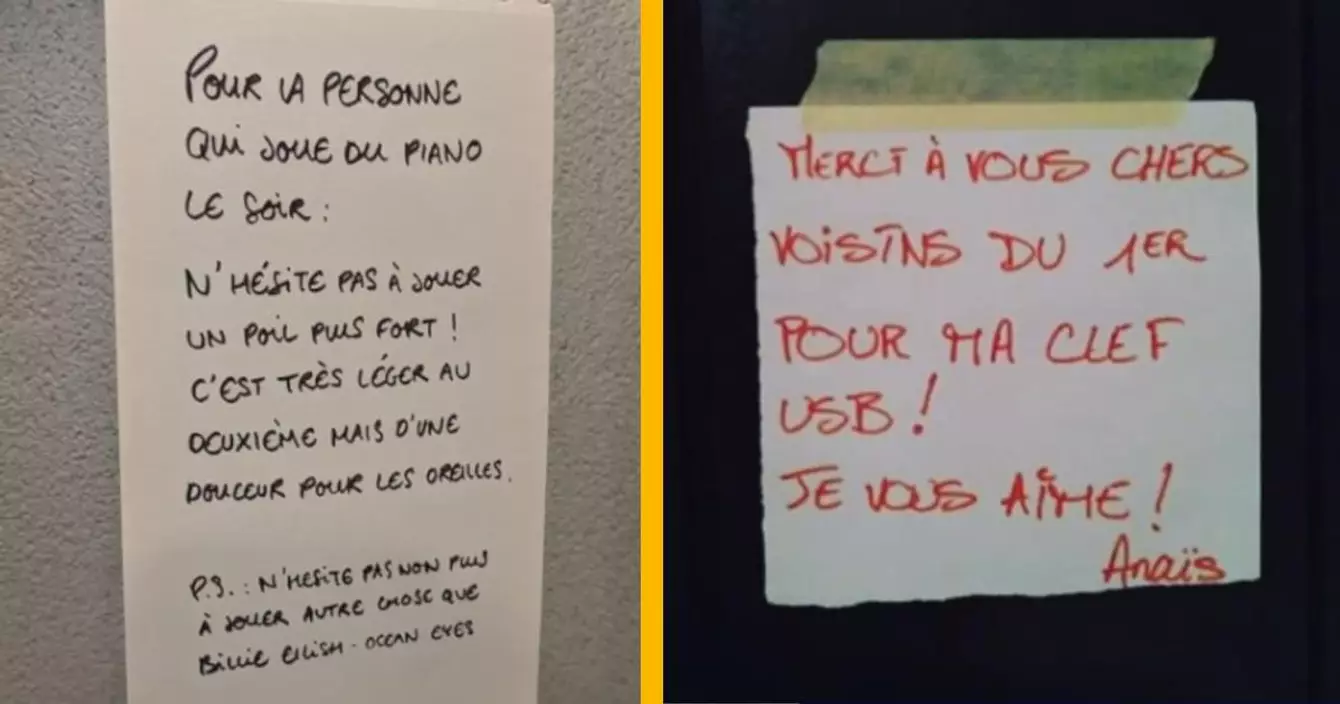 POUR LA PERSONNE
QUI JOUE DU PIANO
LE SOIR :
N'HÉSITE PAS À JOUER
UN POIL PLUS FORT !
C'EST TRÈS LÉGER AU
DEUXIÈME MAIS D'UNE
DOUCEUR POUR LES OREILLES.
P.S. : N'HESITE PAS NON PLUS
À JOUER AUTRE CHOSE QUE
BILLIE EILISH - OCEAN EYES
MERCI À VOUS CHERS
VOISINS DU 1ER
POUR MA CLEF
USB !
JE VOUS AIME !
Anaïs